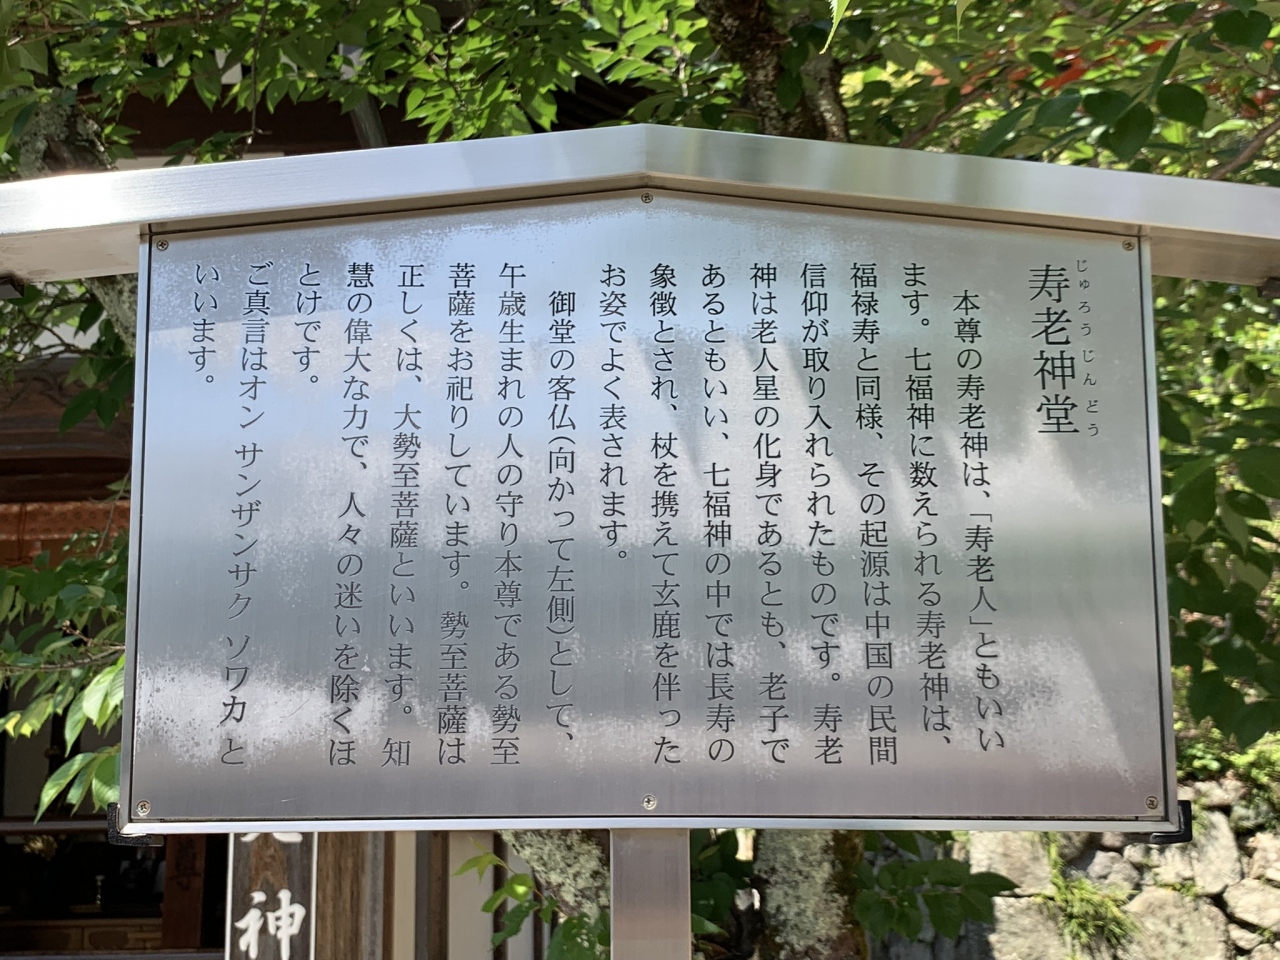 じゅろうじんどう
寿老神堂
本尊の寿老神は、「寿老人」ともいい
ます。七福神に数えられる寿老神は、
福禄寿と同様、その起源は中国の民間
信仰が取り入れられたものです。寿老
神は老人星の化身であるとも、老子で
あるともいい、七福神の中では長寿の
象徴とされ、杖を携えて玄鹿を伴った
お姿でよく表されます。
御堂の客仏(向かって左側)として、
午歳生まれの人の守り本尊である勢至
菩薩をお祀りしています。勢至菩薩は
正しくは、大勢至菩薩といいます。知
慧の偉大な力で、人々の迷いを除くほ
とけです。
ご真言はオン サンザンサク ソワカ と
いいます。
神